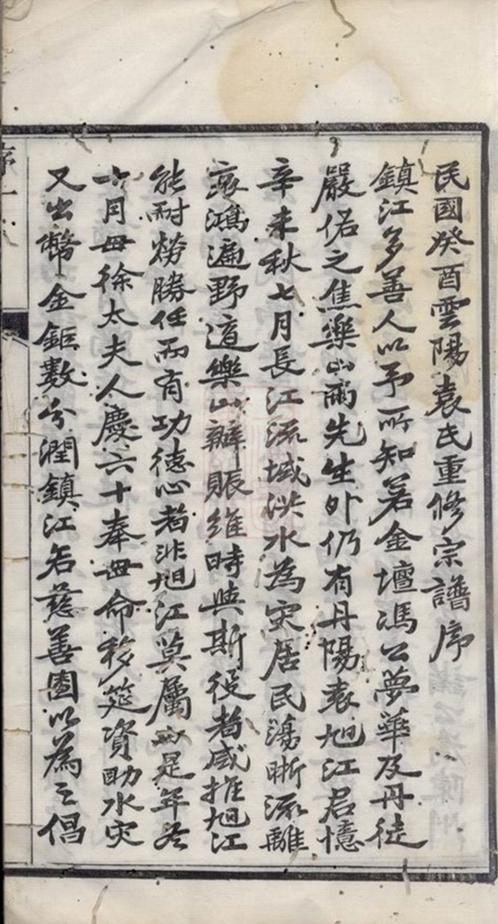 民國癸酉雲陽袁氏重修宗譜序
鎮江多善人以予所知若金壇馮公夢華及丹徒
嚴佑之焦樂山兩先生外仍有丹陽袁旭江君憶
辛未秋七月長江流域洪水為災居民蕩晣流離
哀鴻遍野道樂山辦賑維時與斯役者咸推旭江
能耐勞勝任而有功德心者非旭江莫屬以是年冬
六月母徐太夫人慶六十奉母命移筵資助水灾
又出幣金鉅數分潤鎮江各慈善團以為之倡
序一